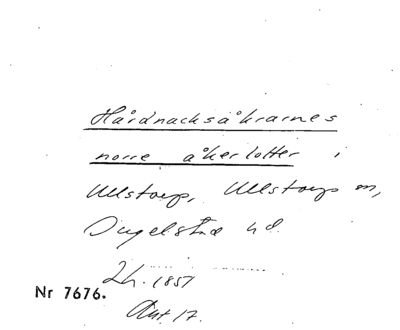 Hårdnacksåkrarnes
norre åkerlotter i
Ullstorp, Ullstorps m,
Ingelstad hd.
Lh. 1857
Nr 7676.
Akt. 17.